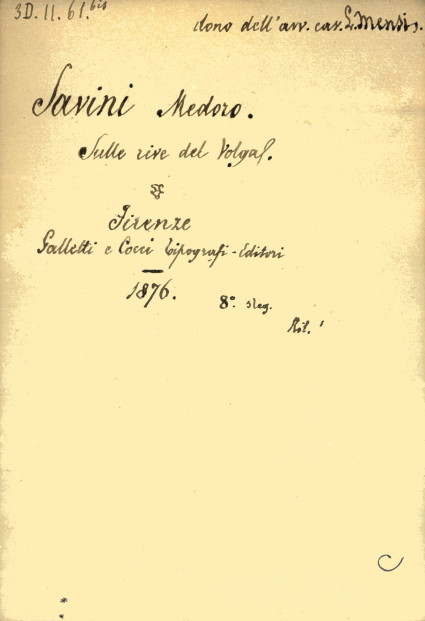 3D. 11. 61.bis
dono dell'avv. cav. L. Mensi.
Savini Medoro.
Sulle rive del Volga.
Firenze
Galletti e Cocci Tipografi-Editori
1876. 8° sleg.
Ril.
C